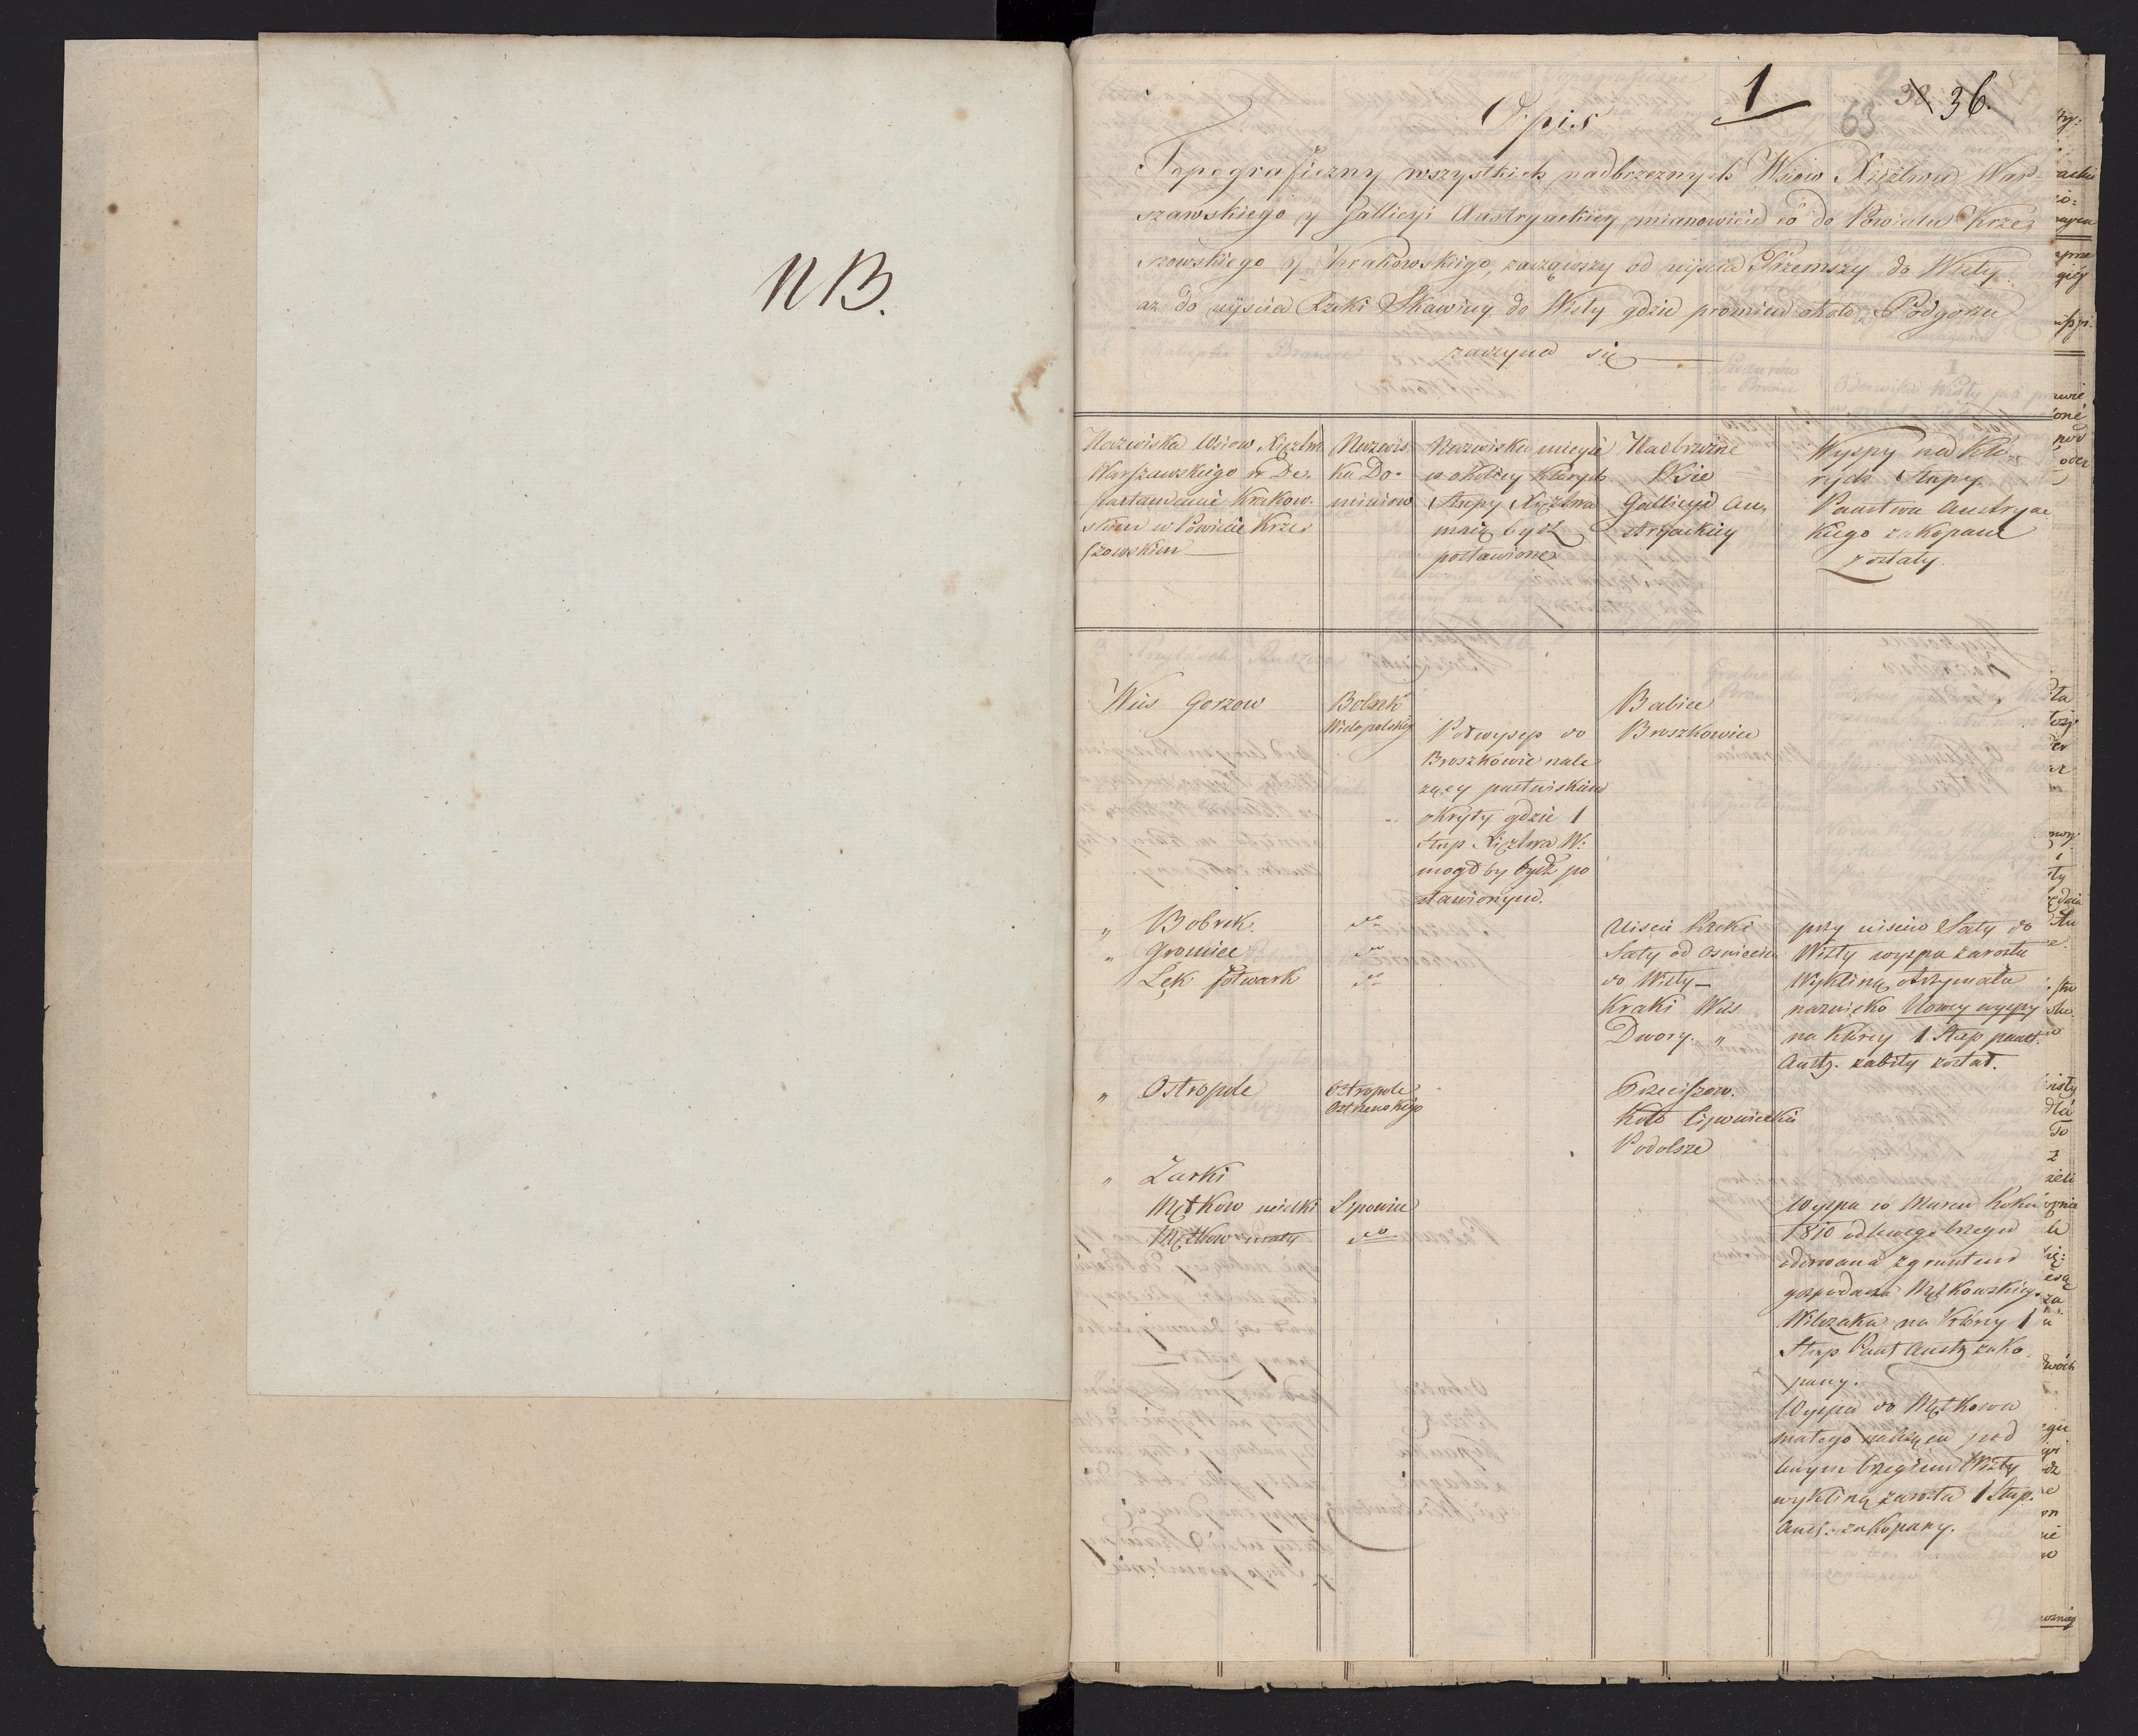 NB.
1
38 36.
63
Opis
Topograficzny wszystkich nadbrzeznych Wsiow Xięztwa War=
szawskiego y Gallicyi Austryackiey mianowicie co do Powiatu Krze=
szowskiego y Krakowskiego, zacząwszy od uyscia Przemszy do Wisły
az do uyscia Rzeki Skawiny do Wisły gdzie promien około Podgorza
zaczyna się
Nazwiska Wsiow Xięztwa
Warszawskiego w De=
partamencie Krakow=
skim w Powiecie Krze=
szowskim
Nazwis
ka Do=
miniow
Nazwiska mieysc
w okolicy ktorych
Słupy Xięztwa
maią bydź
postawione
Nadbrzezne
Wsie
Gallicyi Au=
stryackiey
Wyspy na kto=
rych Słupy
Panstwa Austryac
kiego zakopane
zostały.
Wies Gorzow
Bobrek
Wielopolskiy
Podwysep do
Broszkowic nale
zący pastwiskiem
okryty gdzie 1
Słup Xięztwa W:
mogł by bydź po
stawionym.
Babice
Broszkowice
" Bobrek.
do
" Gromiec
do
Łęk folwark
do
Uiscie Rzeki
Soły od Oswiecim
do Wisły
Kraki Wies
Dwory "
przy uisciu Soły do
Wisły wyspa zarosła
Wykliną otrzymała
nazwisko Nowey wyspy
na ktorey 1 Słup panst.
Austr. zabity został.
" Ostropole
Ostropole
Przeciszow.
Koło
Podolsze
" Zarki
Mętkow wielki
Lipowiec
Mętkow mały
do
Wyspa w Marcu Roku
1810 od lewego brzegu
oderwana z gruntem
gospodarza Mętkowskiego
Wilczaka na ktorey 1
Słup Panst Austr zako
pany.
Wyspa do Mętkowa
małego należąca pod
lewym brzegiem Wisły
wykliną zarosła 1 Słup.
Aust. zakopany.